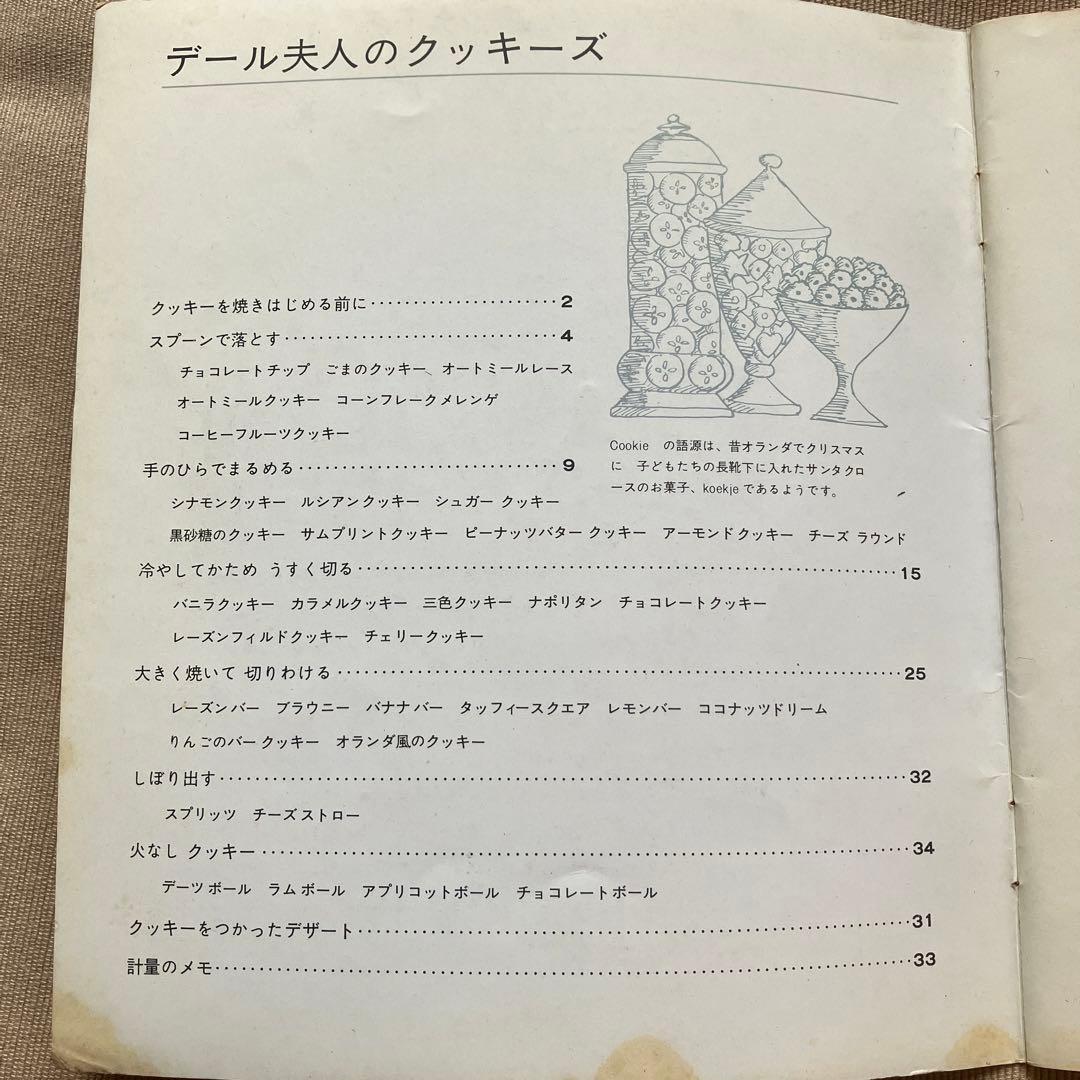 デール夫人のクッキーズ
クッキーを焼きはじめる前に······················2
スプーンで落とす·······························4
チョコレートチップ　ごまのクッキー、オートミールレース
オートミールクッキー　コーンフレークメレンゲ
コーヒーフルーツクッキー
Cookie　の語源は、昔オランダでクリスマス
に　子どもたちの長靴下に入れたサンタクロ
ースのお菓子、koekjeであるようです。
手のひらでまるめる······························9
シナモンクッキー　ルシアンクッキー　シュガー クッキー
黒砂糖のクッキー　サムプリントクッキー　ピーナッツバター クッキー　アーモンドクッキー　チーズ ラウンド
冷やしてかため うすく切る······························15
バニラクッキー　カラメルクッキー　三色クッキー　ナポリタン　チョコレートクッキー
レーズンフィルドクッキー　チェリークッキー
大きく焼いて 切りわける······························25
レーズンバー　ブラウニー　バナナバー　タッフィースクエア　レモンバー　ココナッツドリーム
りんごのバー クッキー　オランダ風のクッキー
しぼり出す······························32
スプリッツ　チーズストロー
火なし クッキー······························34
デーツボール　ラムボール　アプリコットボール　チョコレートボール
クッキーをつかったデザート······························31
計量のメモ······························33